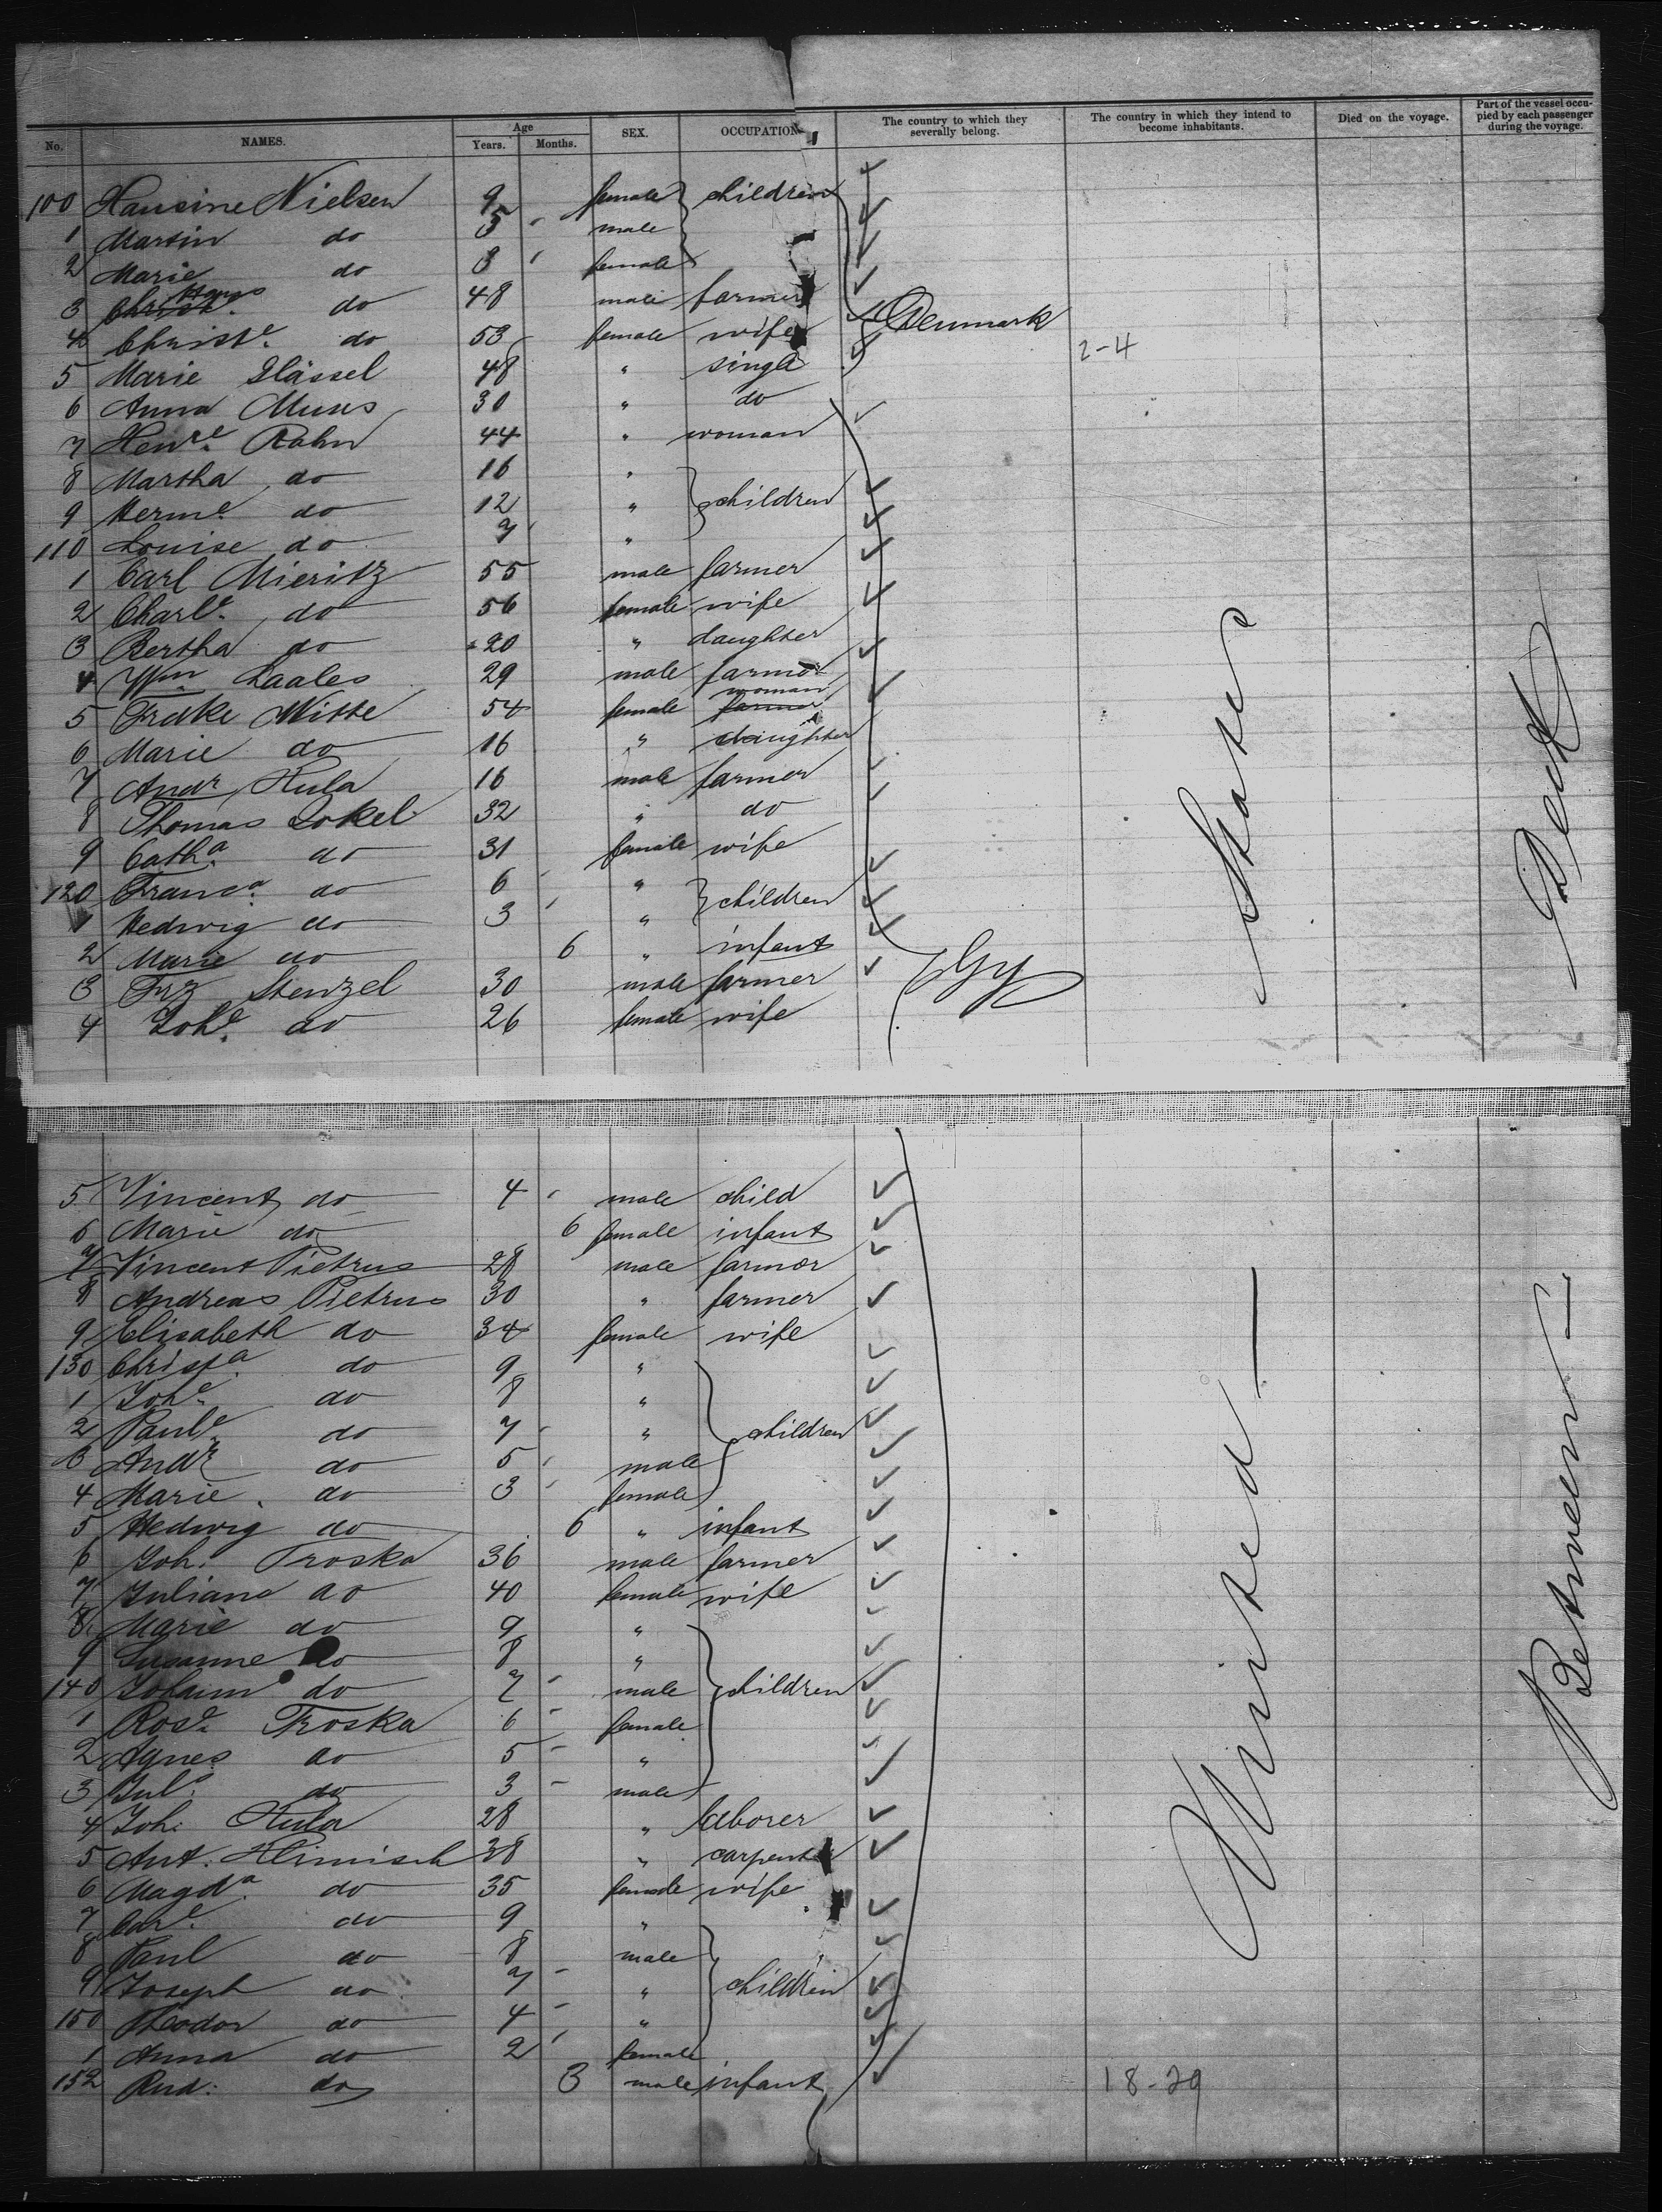 No. NAMES. Age Years. Months. SEX. OCCUPATION The country to which they severally belong. The country in which they intend to become inhabitants. Died on the voyage. Part of the vessel occupied by each passenger during the voyage.
100 Hansine Nielsen 9 female children
1 Martin do 5 male
2 Marie do 3 female
3 Christ. Hans do 48 male farmer
4 Christe. do 53 female wife Denmark
2-4
5 Marie Glässel 48 " single
6 Anna Muus 30 " do
7 Henre. Rahn 44 " woman
8 Martha do 16 "
9 Herme. do 12 " children
110 Louise do 7 "
1 Carl Mieritz 55 male farmer
2 Charle. do 56 female wife
3 Bertha do 20 " daughter
4 Wm Laales 29 male farmer
5 Frdke Witte 54 female farmer woman
6 Marie do 16 " daughter
7 Andr Kula 16 male farmer
8 Thomas Sokel 32 " do
9 Catha. do 31 female wife
120 Franca. do 6 "
1 Hedwig do 3 " children
2 Marie do 6 " infant
3 Frz Stenzel 30 male farmer Gy
4 Johe. do 26 female wife
5 Vincent do 4 male child
6 Marie do 6 female infant
7 Vincent Pietrus 28 male farmer
8 Andreas Pietrus 30 " farmer
9 Elisabeth do 34 female wife
130 Christa. do 9 "
1 Johe. do 8 "
2 Paule. do 7 " children
3 Andr do 5 male
4 Marie do 3 female
5 Hedwig do 6 " infant
6 Joh. Troska 36 male farmer
7 Juliana do 40 female wife
8 Marie do 9 "
9 Susanne do 8 "
140 Johann do 7 male children
1 Rose. Troska 6 female
2 Agnes do 5 "
3 Jul. do 3 male
4 Joh. Kula 28 " laborer
5 Ant. Klimisch 38 " carpenter
6 Magda. do 35 female wife
7 Care. do 9 "
8 Paul do 8 male
9 Joseph do 7 " children
150 Theodor do 4 "
1 Anna do 2 female
152 Rud. do 3 male infant
18-29
United States
Between Deck